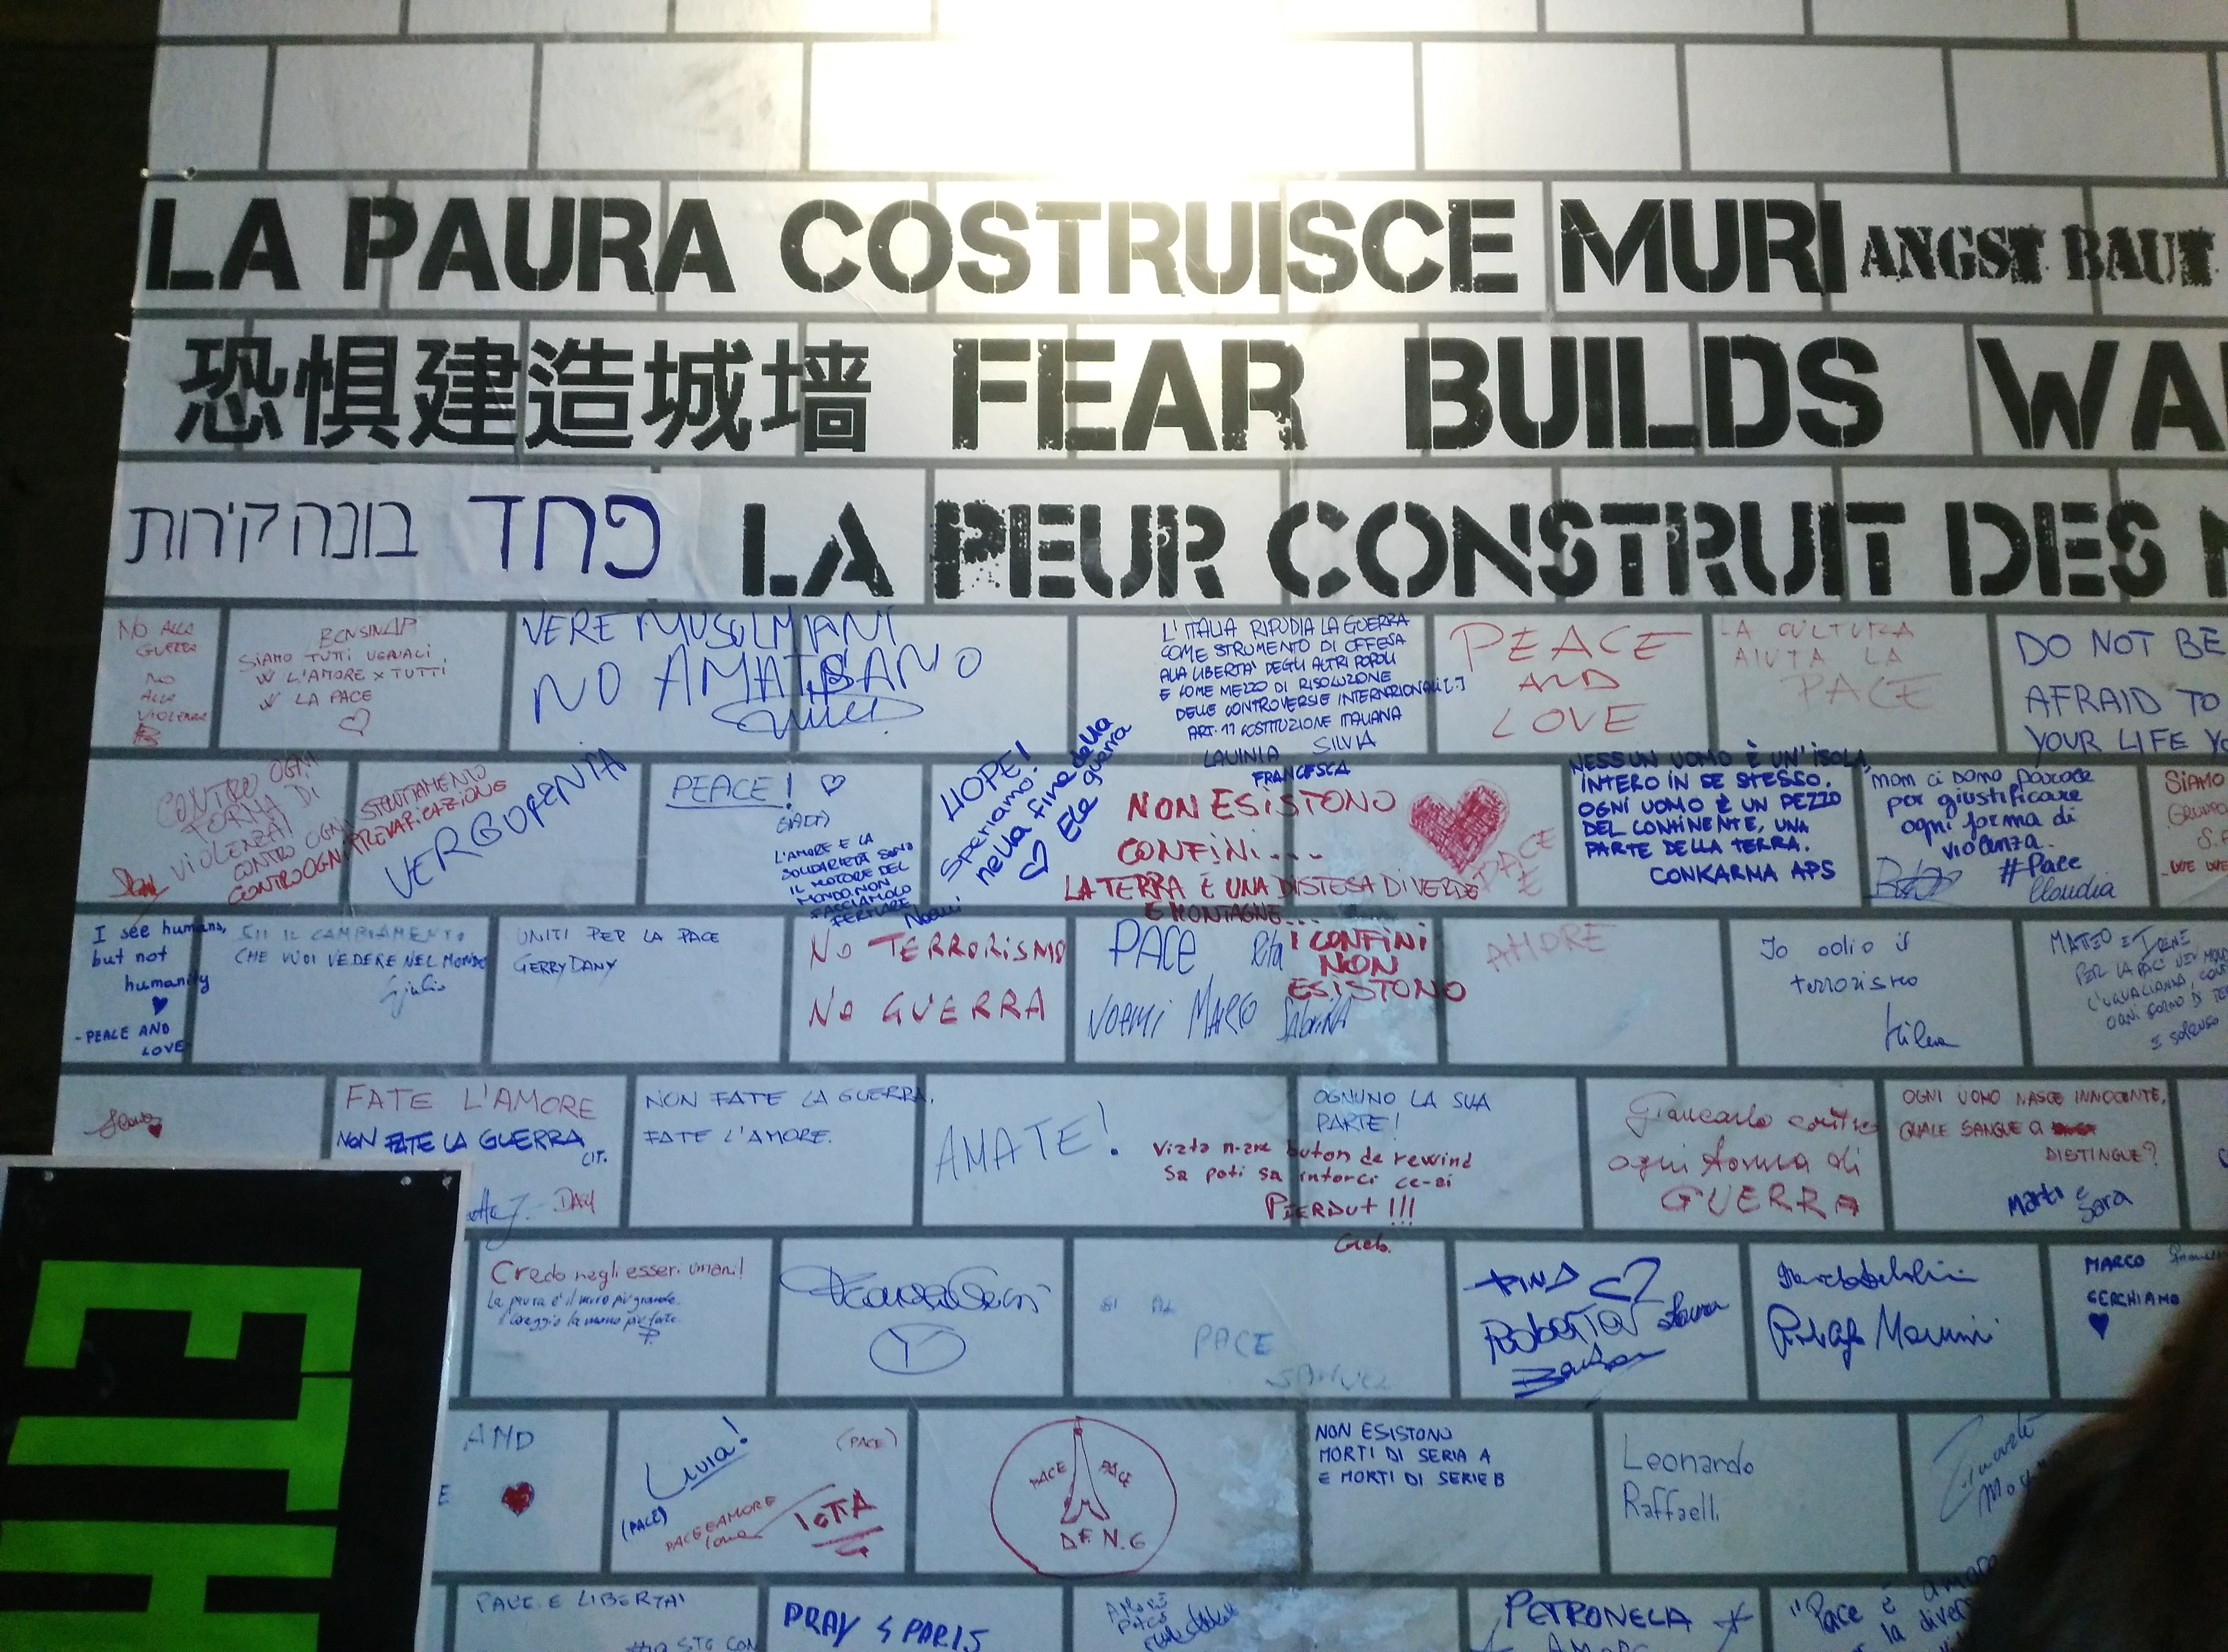 LA PAURA COSTRUISCE MURI ANGST BAUT
恐惧建造城墙 FEAR BUILDS WA
פחד בונה קירות LA PEUR CONSTRUIT DES
NO ALLA
GUERRA
NO
ALLA
VIOLENZA
SIAMO TUTTI UGUALI
W L'AMORE X TUTTI
W LA PACE
VERE MUSULMANI
NO AMANO
L'ITALIA RIPUDIA LA GUERRA
COME STRUMENTO DI OFFESA
ALLA LIBERTA' DEGLI ALTRI POPOLI
E COME MEZZO DI RISOLUZIONE
DELLE CONTROVERSIE INTERNAZIONALI [.]
ART. 11 COSTITUZIONE ITALIANA
LAVINIA SILVIA
FRANCESCA
PEACE
AND
LOVE
LA CULTURA
AIUTA LA
PACE
DO NOT BE
AFRAID TO
YOUR LIFE
CONTRO OGNI
FORMA DI
VIOLENZA!
CONTRO OGNI SFRUTTAMENTO
CONTRO OGNI PREVARICAZIONE
VERGOGNIA
PEACE!
L'AMORE E LA
SOLIDARIETÀ SONO
IL MOTORE DEL
MONDO. NON
FACCIAMOLO
FERMARE
Noemi
HOPE!
Speriamo
nella fine della
guerra
Ele
NON ESISTONO
CONFINI...
LA TERRA È UNA DISTESA DI VERDE
E MONTAGNE...
I CONFINI
NON
ESISTONO
PACE
NESSUN UOMO È UN'ISOLA,
INTERO IN SE STESSO.
OGNI UOMO È UN PEZZO
DEL CONTINENTE, UNA
PARTE DELLA TERRA.
CONKARMA APS
non ci sono parole
per giustificare
ogni forma di
violenza.
#Pace
Claudia
SIAMO
I see humans,
but not
humanity
- PEACE AND
LOVE
SII IL CAMBIAMENTO
CHE VUOI VEDERE NEL MONDO
Giulio
UNITI PER LA PACE
GERRY DANY
NO TERRORISMO
NO GUERRA
PACE Rita
NOEMI MARCO SABRINA
AMORE
Io odio il
terrorismo
MATTEO E IRENE
FATE L'AMORE
NON FATE LA GUERRA
CIT.
DAY
NON FATE LA GUERRA,
FATE L'AMORE.
AMATE!
OGNUNO LA SUA
PARTE!
Viata n-are buton de rewind
Sa poti sa intorci ce-ai
PIERDUT !!!
Giancarlo contro
ogni forma di
GUERRA
OGNI UOMO NASCE INNOCENTE,
QUALE SANGUE
DISTINGUE?
Marti e
Sara
Credo negli esseri umani!
La paura è il muro più grande.
Il coraggio la mano più forte.
SI AL
PACE
SAMUEL
ROBERTA Laura
MARCO
CERCHIAMO
AND
E
Livia!
(PACE)
(PACE)
PACE E AMORE
PACE PACE
D.E.N.G
NON ESISTONO
MORTI DI SERIA A
E MORTI DI SERIE B
Leonardo
Raffaelli
ETH
PACE E LIBERTA'
PRAY 4 PARIS
AMORE
PACE
PETRONELA
AMORE
"Pace è